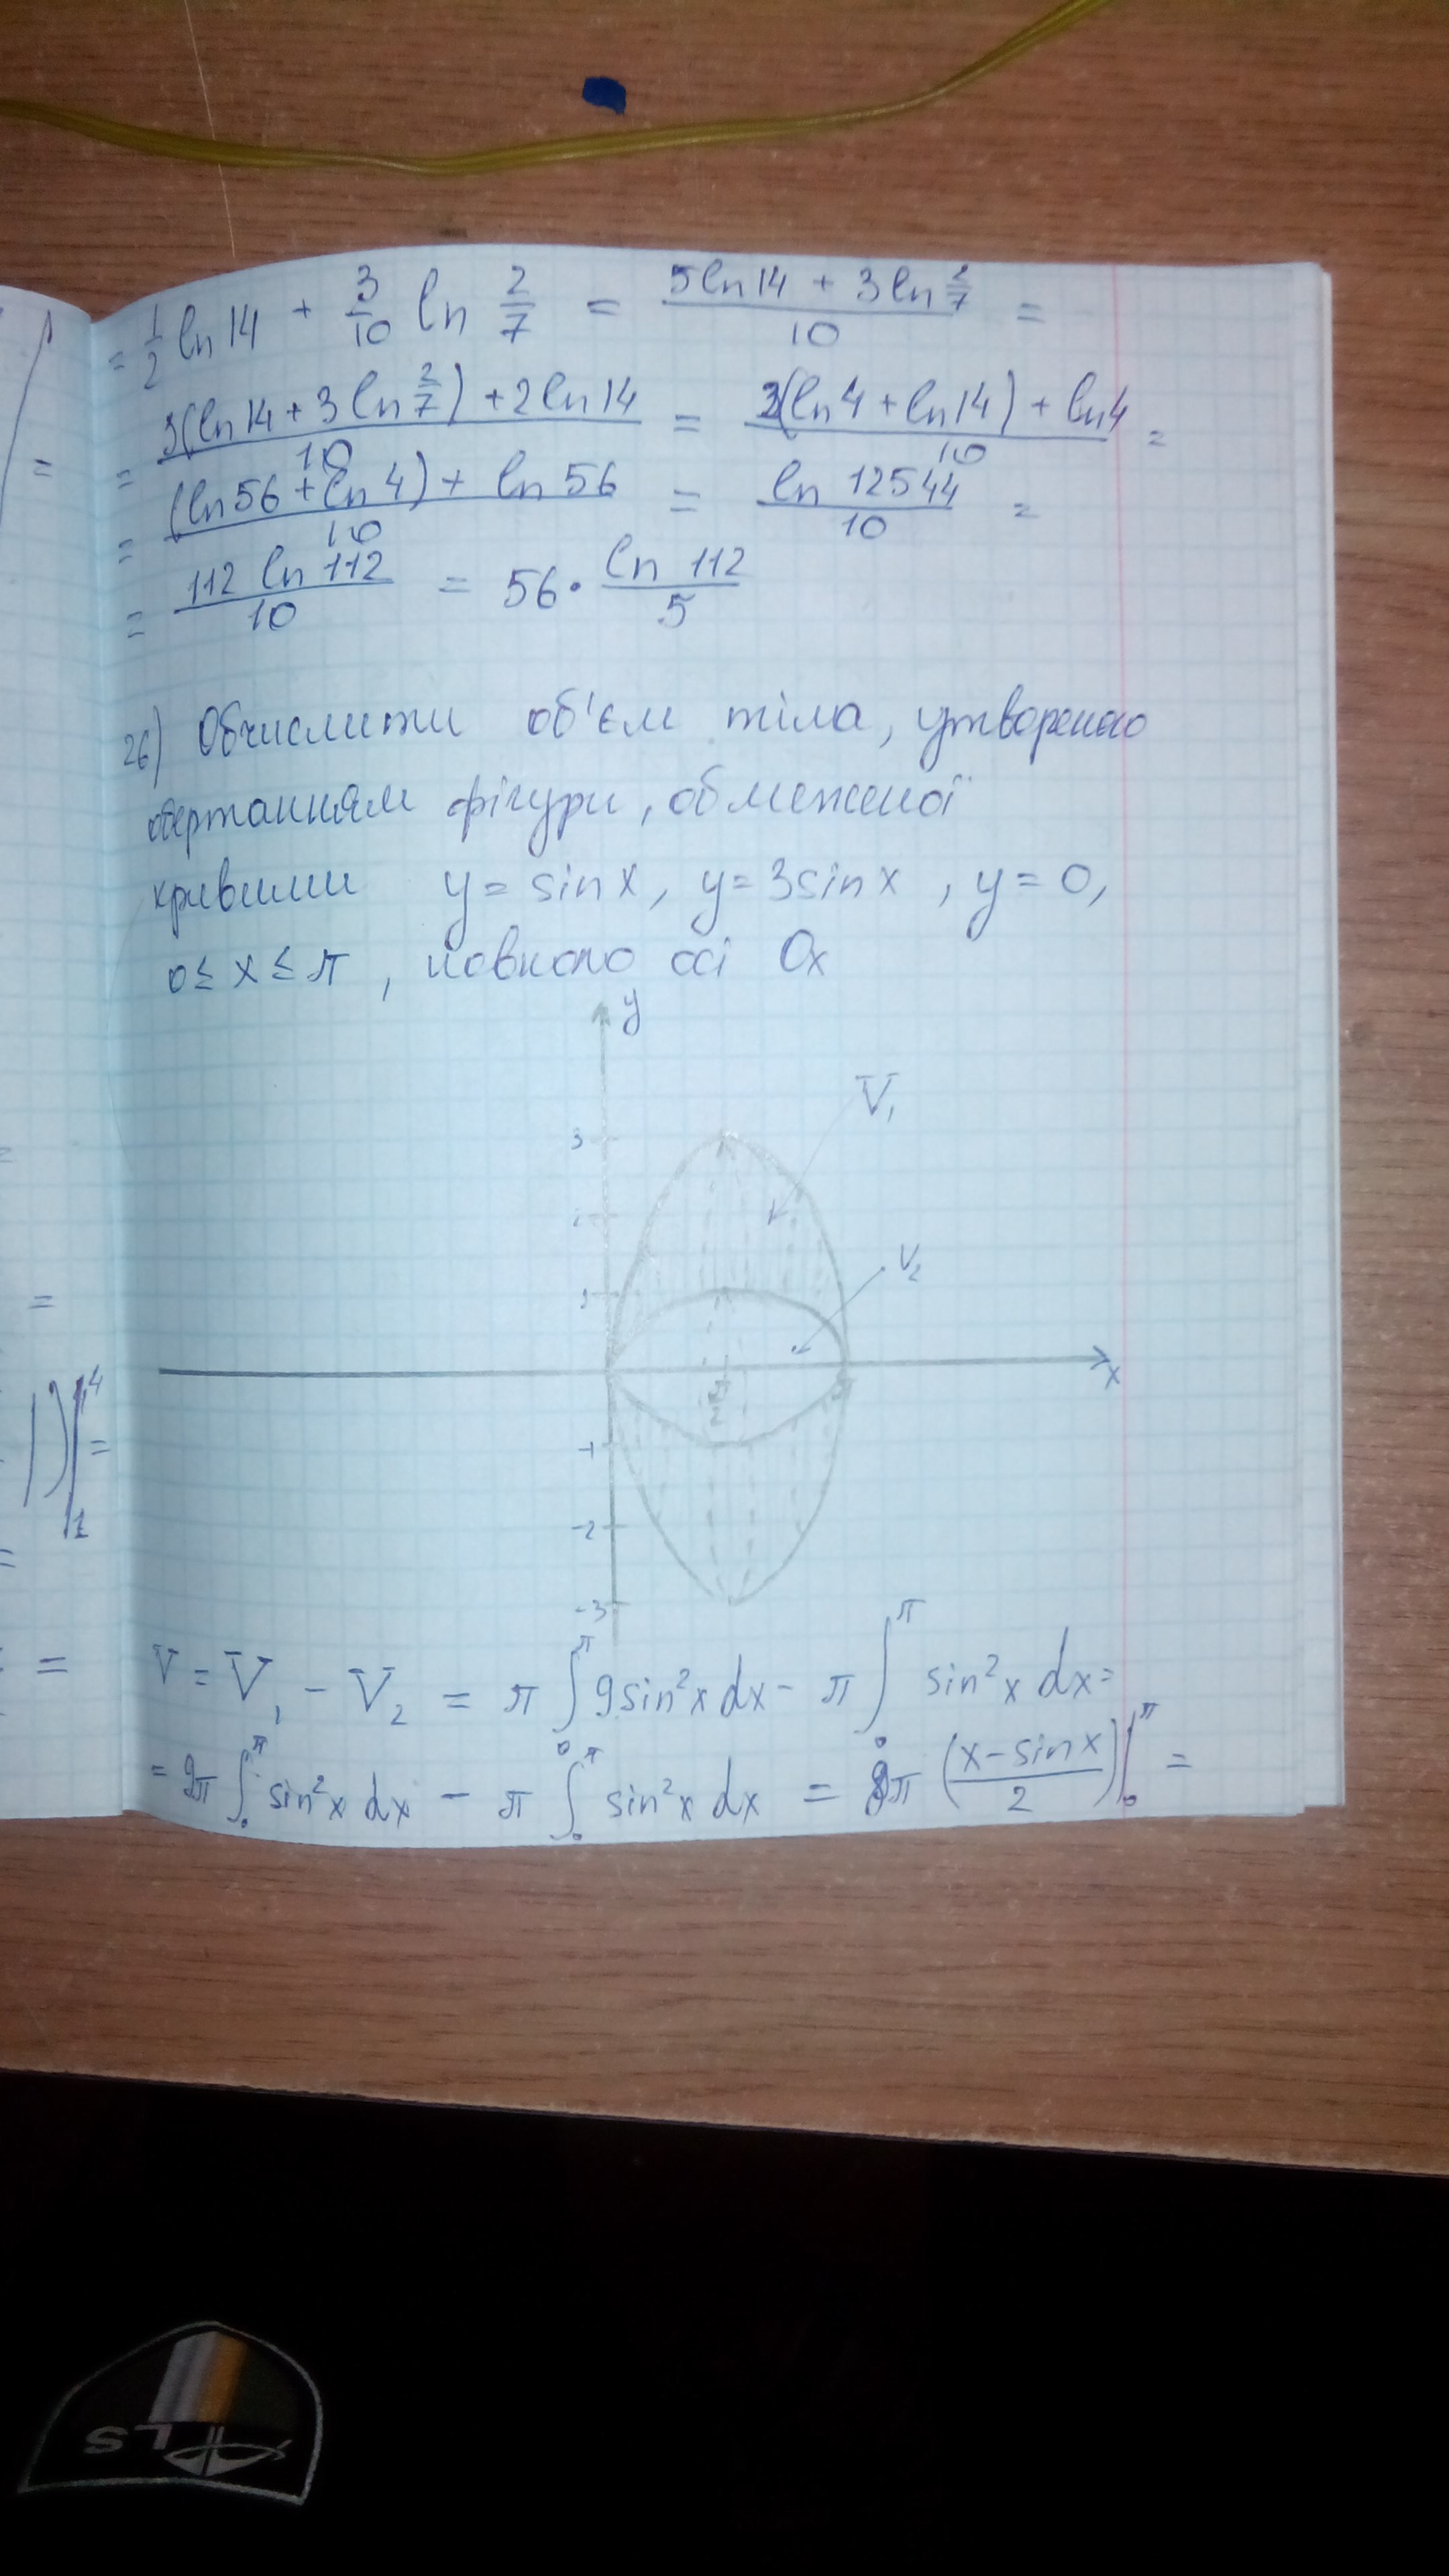 = 1/2 ln 14 + 3/10 ln 2/7 = (5 ln 14 + 3 ln 2/7)/10 =
= (3(ln 14 + 3 ln 2/7) + 2 ln 14)/10 = (3(ln 4 + ln 14) + ln 4)/10 =
= ((ln 56 + ln 4) + ln 56)/10 = ln 12544/10 =
= 112 ln 112/10 = 56 · ln 112/5
26) Обчислити об'єм тіла, утвореного
обертанням фігури, обмеженої
кривими y = sin x, y = 3sin x, y = 0,
0 ≤ x ≤ π, навколо осі Ox
y
V₁
3
V₂
1
x
-1
-2
-3
V = V₁ - V₂ = π ∫₀^π 9 sin²x dx - π ∫₀^π sin²x dx =
= 9π ∫₀^π sin²x dx - π ∫₀^π sin²x dx = 8π ((x - sin x)/2)|₀^π =
=
=
)|₁⁴ =
=
=
LS